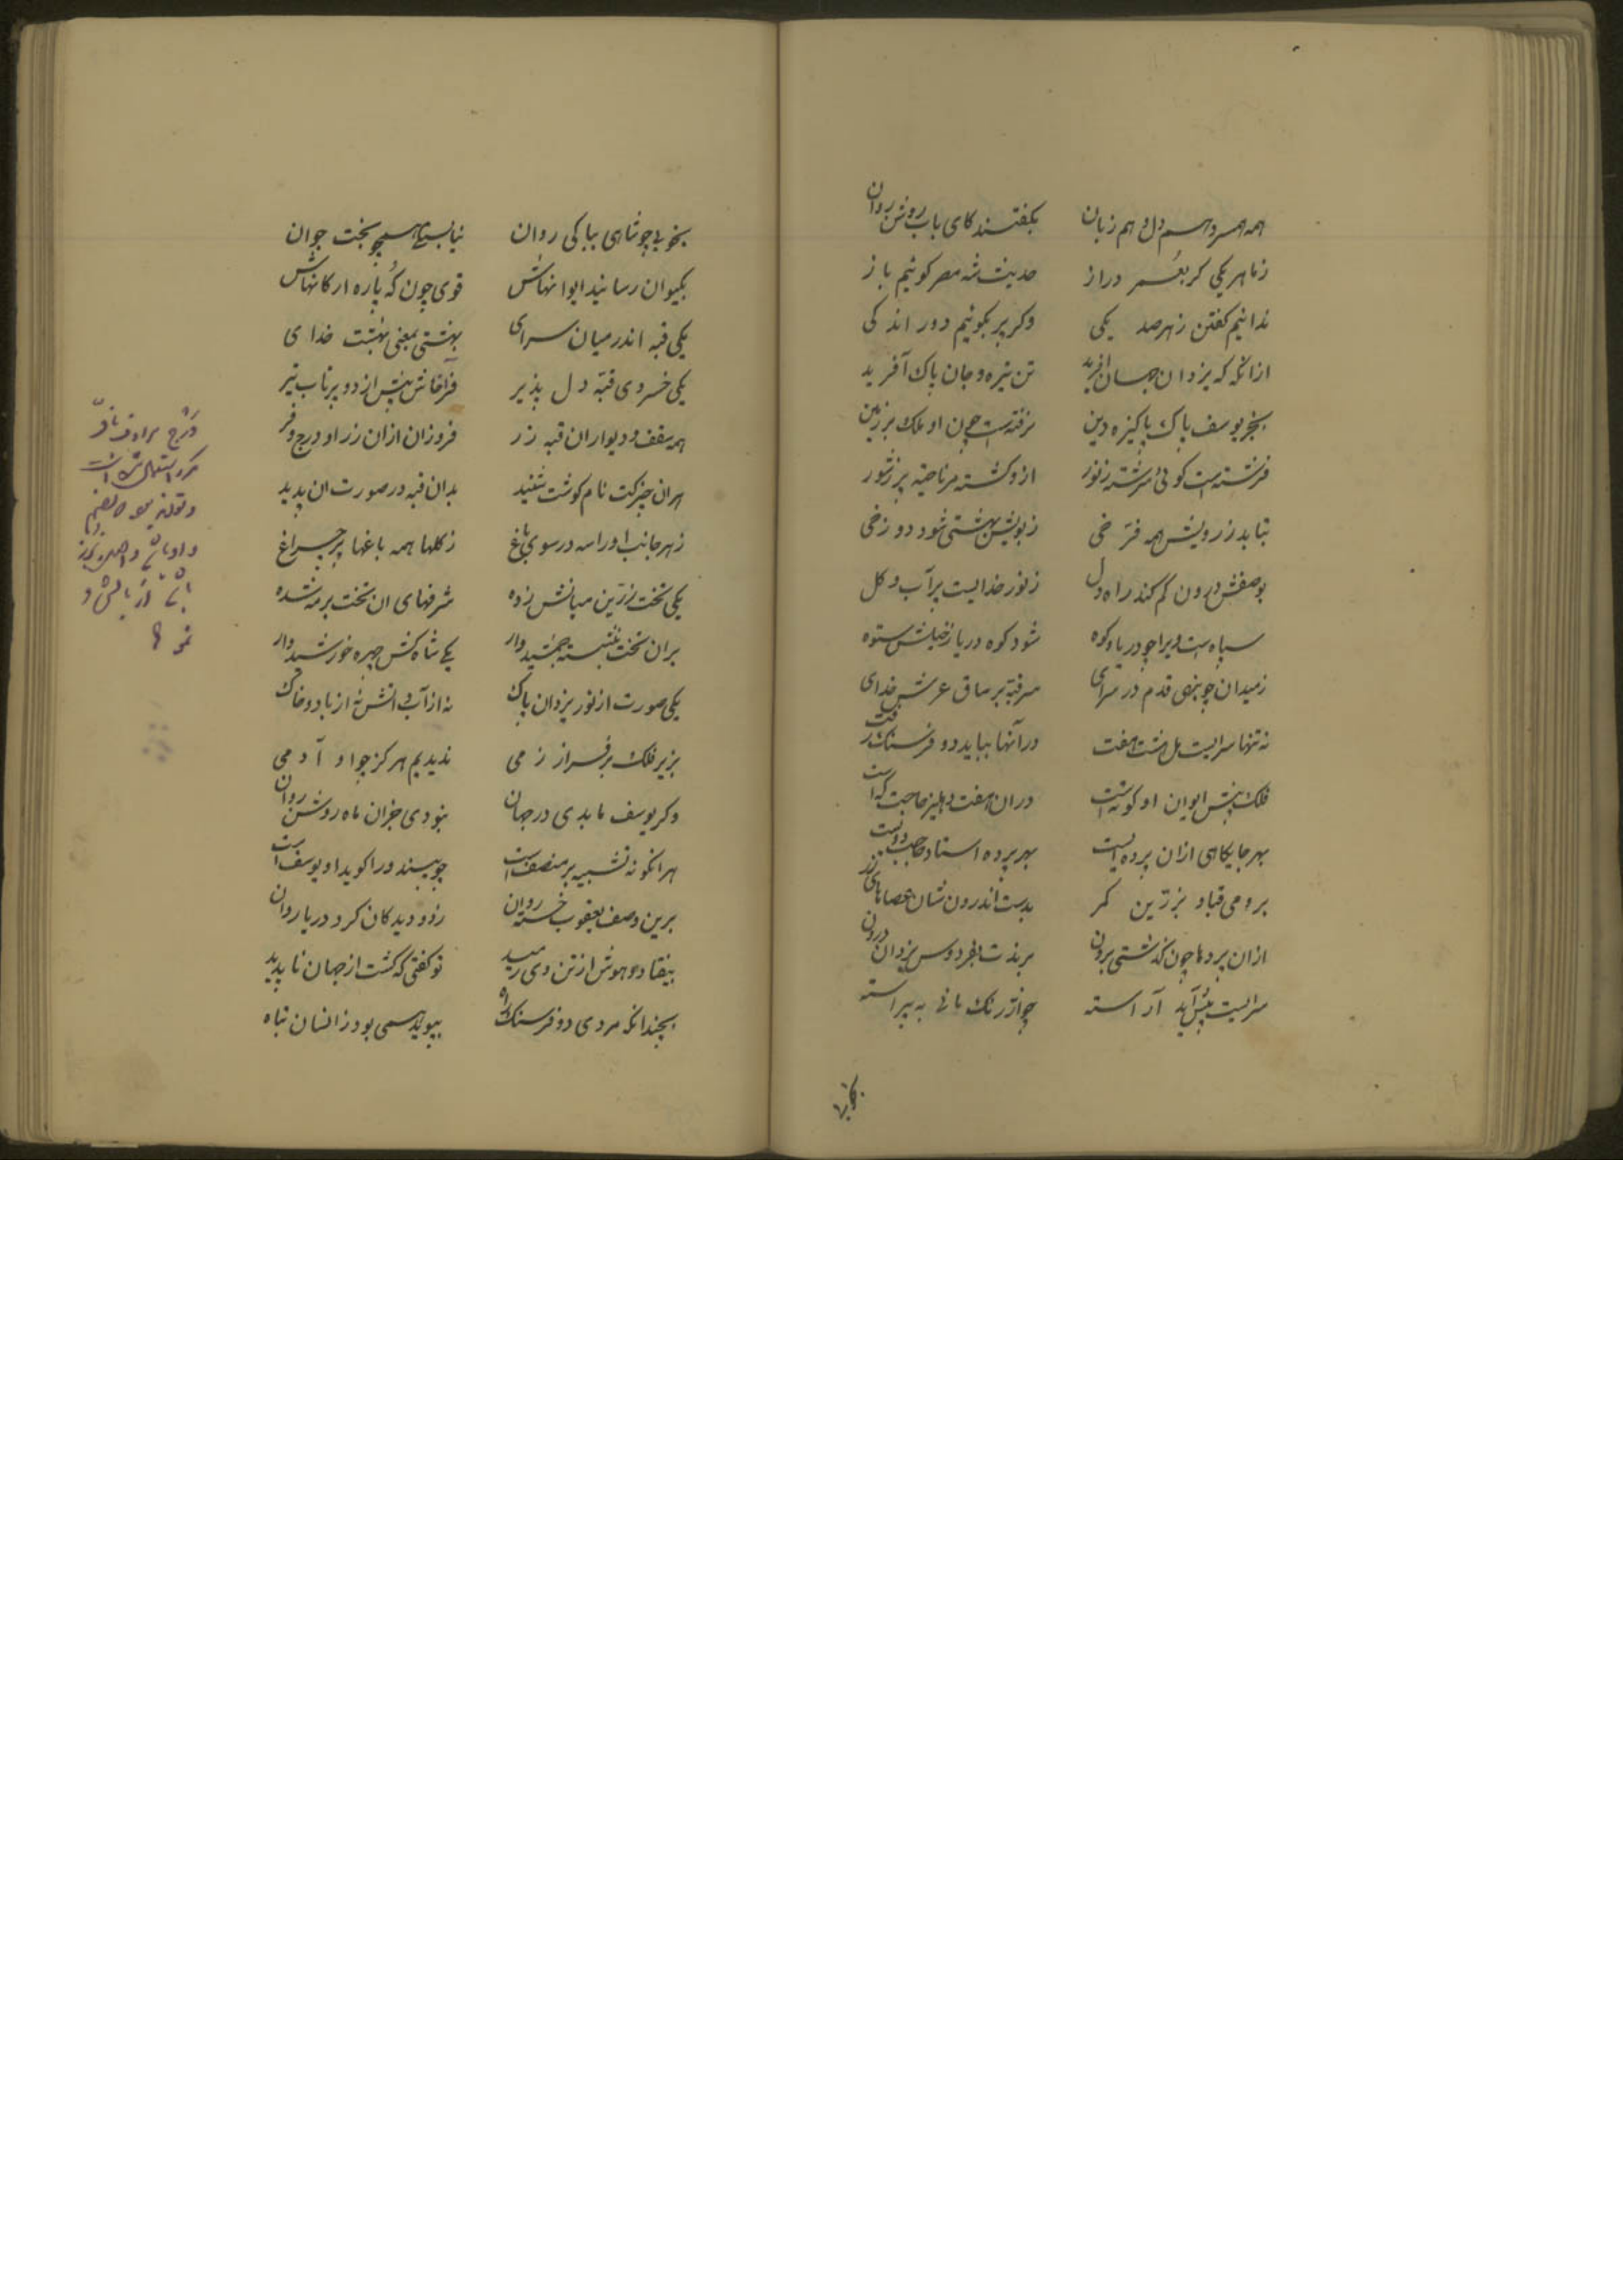 همه همسر و هم دل و هم زبان بگفتند کای باب روشن روان
زما هر یکی کر بعمر دراز حدیث شه مصر کوئیم باز
ندانیم کفتن زهر صد یکی وکر پر بکوئیم دور اندکی
ازانکه که یزدان جهان افرید تن تیره و جان پاک آفرید
بجز یوسف پاک پاکیزه دین نرفته است چون او ملک بر زمین
فرشته است کوئی سرشته زنور ازو کشته هر ناحیه پر زشور
بتابد ز رویش همه فرخی ز بویش بهشتی شود دوزخی
بوصفش درون کم کند راه دل ز نور خدایست پر آب و کل
سپاه است ویرا چو دریا و کوه شود کوه دریا ز خیلش ستوه
زمیدان چو بنهی قدم در سرای سر قبه بر ساق عرش خدای
نه تنها سرایست بل هشت هفت در آنها بباید دو فرسنک رفت
فلک پیش ایوان او کوته است دران هفت دهلیز حاجت که است
بهر جایکاهی ازان پرده ایست بهر پرده استاد حاجب دویست
برومی قباد بزرین کمر بدست اندرون شان عصاهای زر
ازان پردها چون کذشتی برون برندت بفردوس یزدان درون
سرایست پیش آید آراسته چو ارتنک مانی به پیراسته
بخوبی
بخوبی چو شاهی بپاکی روان نبایستی همچو بخت جوان
بکیوان رسانید ایوانهاش قوی چون که پاره ارکانهاش
یکی قبه اندر میان سرای بهشتی بمعنی بهشت خدای
یکی خسروی قبه دل پذیر فراخاش بیش از دو پرتاب تیر
همه سقف و دیواران قبه زر فروزان ازان زر او درج و فر
هران چیز کت نام کوشت شنید بدان قبه در صورت ان پدید
زهر جانب اوراست در سوی باغ ز کلها همه باغها پر چراغ
یکی تخت زرین میانش زده شرفهای ان تخت بر مه شده
بران تخت بنشسته جمشید وار یکی شاه کش چهره خورشید وار
یکی صورت از نور یزدان پاک نه از آب و اتش نه از باد و خاک
بزیر فلک بر فراز زمی ندیدیم هرکز چو او آدمی
وکر یوسف ما بدی در جهان نبودی جز ان ماه روشن روان
هرانکونه تشبیه پر منصف است چو بیند ورا کوید او یوسف است
برین وصف یعقوب خسته روان ز دو دیدکان کرد دریا روان
بیفتاد و هوش از تن وی رمید تو کفتی که کشت از جهان ناپدید
بچندانکه مردی دو فرسنک راه بپوید همی بود زانسان تباه